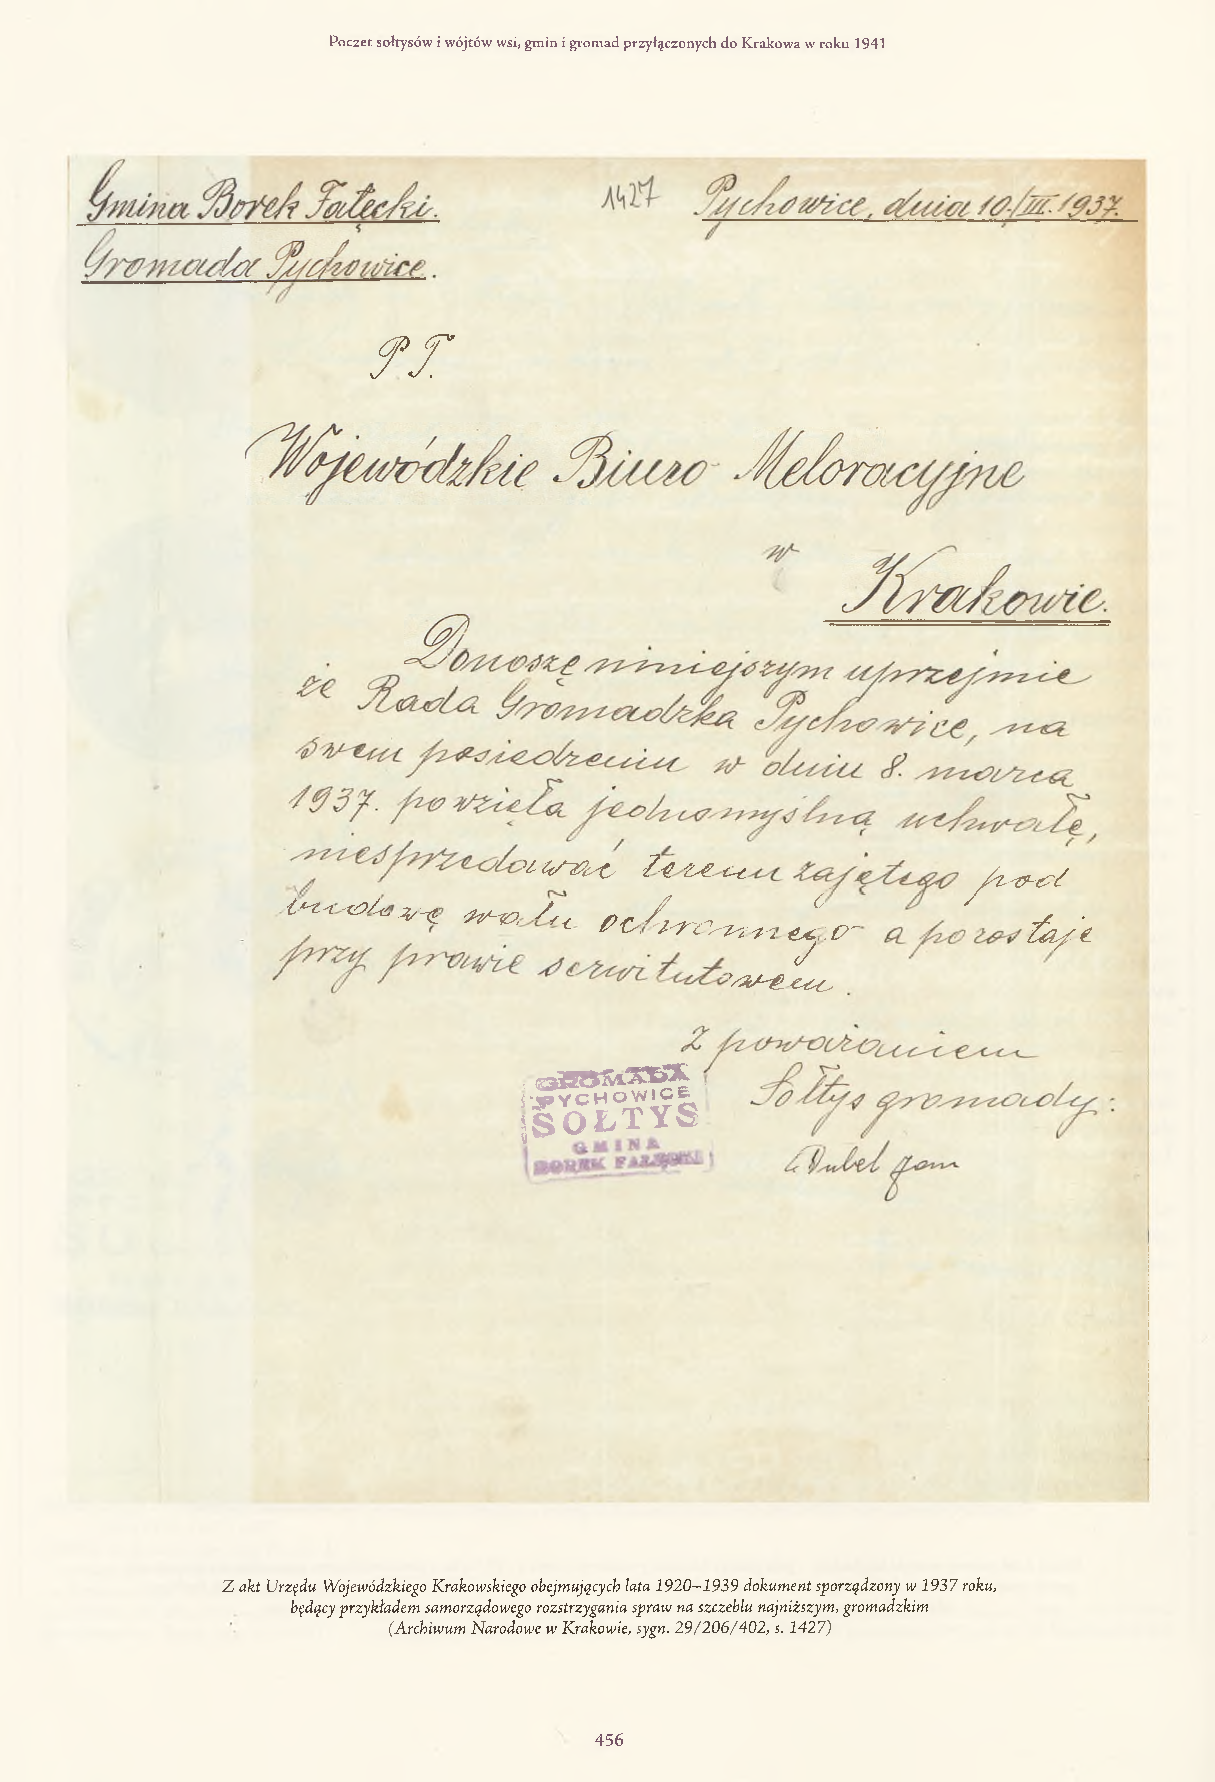 Poczet sołtysów i wójtów wsi, gmin i gromad przyłączonych do Krakowa w roku 1941
Gmina Borek Fałęcki. 1427 Pychowice, dnia 10./III. 1937.
Gromada Pychowice.
P. T.
Wojewódzkie Biuro Meloracyjne
w
Krakowie.
Donoszę niniejszym uprzejmie
że Rada Gromadzka Pychowice, na
swem posiedzeniu w dniu 8. marca
1937. powzięła jednomyślną uchwałę,
niesprzedawać terenu zajętego pod
budowę wału ochronnego a pozostaje
przy prawie serwitutowem.
Z poważaniem
Sołtys gromady:
GROMADA
PYCHOWICE
SOŁTYS
GMINA
BOREK FAŁĘCKI
Dubel Jan
Z akt Urzędu Wojewódzkiego Krakowskiego obejmujących lata 1920–1939 dokument sporządzony w 1937 roku,
będący przykładem samorządowego rozstrzygania spraw na szczeblu najniższym, gromadzkim
(Archiwum Narodowe w Krakowie, sygn. 29/206/402, s. 1427)
456